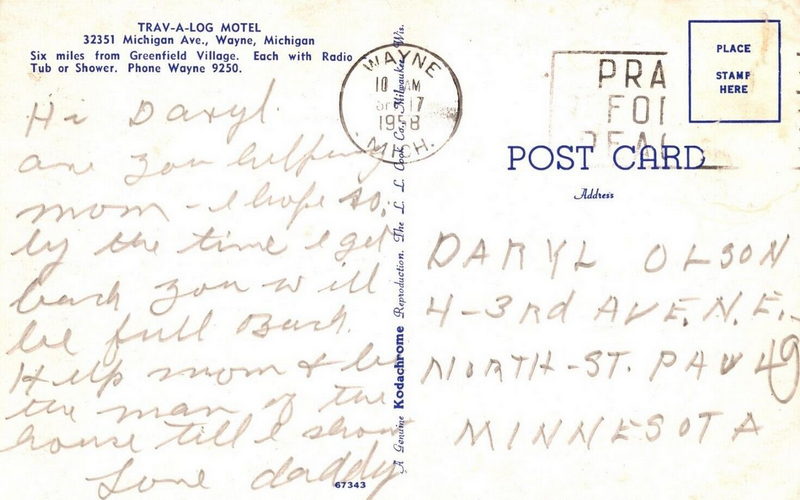 TRAV-A-LOG MOTEL
32351 Michigan Ave., Wayne, Michigan
Six miles from Greenfield Village. Each with Radio
Tub or Shower. Phone Wayne 9250.
Hi Daryl.
are you helping
mom - I hope so,
by the time I get
back you will
be full Back.
Help mom & be
the man of the
house till I show
Love daddy
67343
A Genuine Kodachrome Reproduction. The L. L. Cook Co., Milwaukee, Wis.
WAYNE
10 AM
17
1958
MICH.
PRA
FOR
PEAC
PLACE
STAMP
HERE
POST CARD
Address
DARYL OLSON
4-3rd AVE. N.E.
NORTH-ST. PAUL 9
MINNESOTA